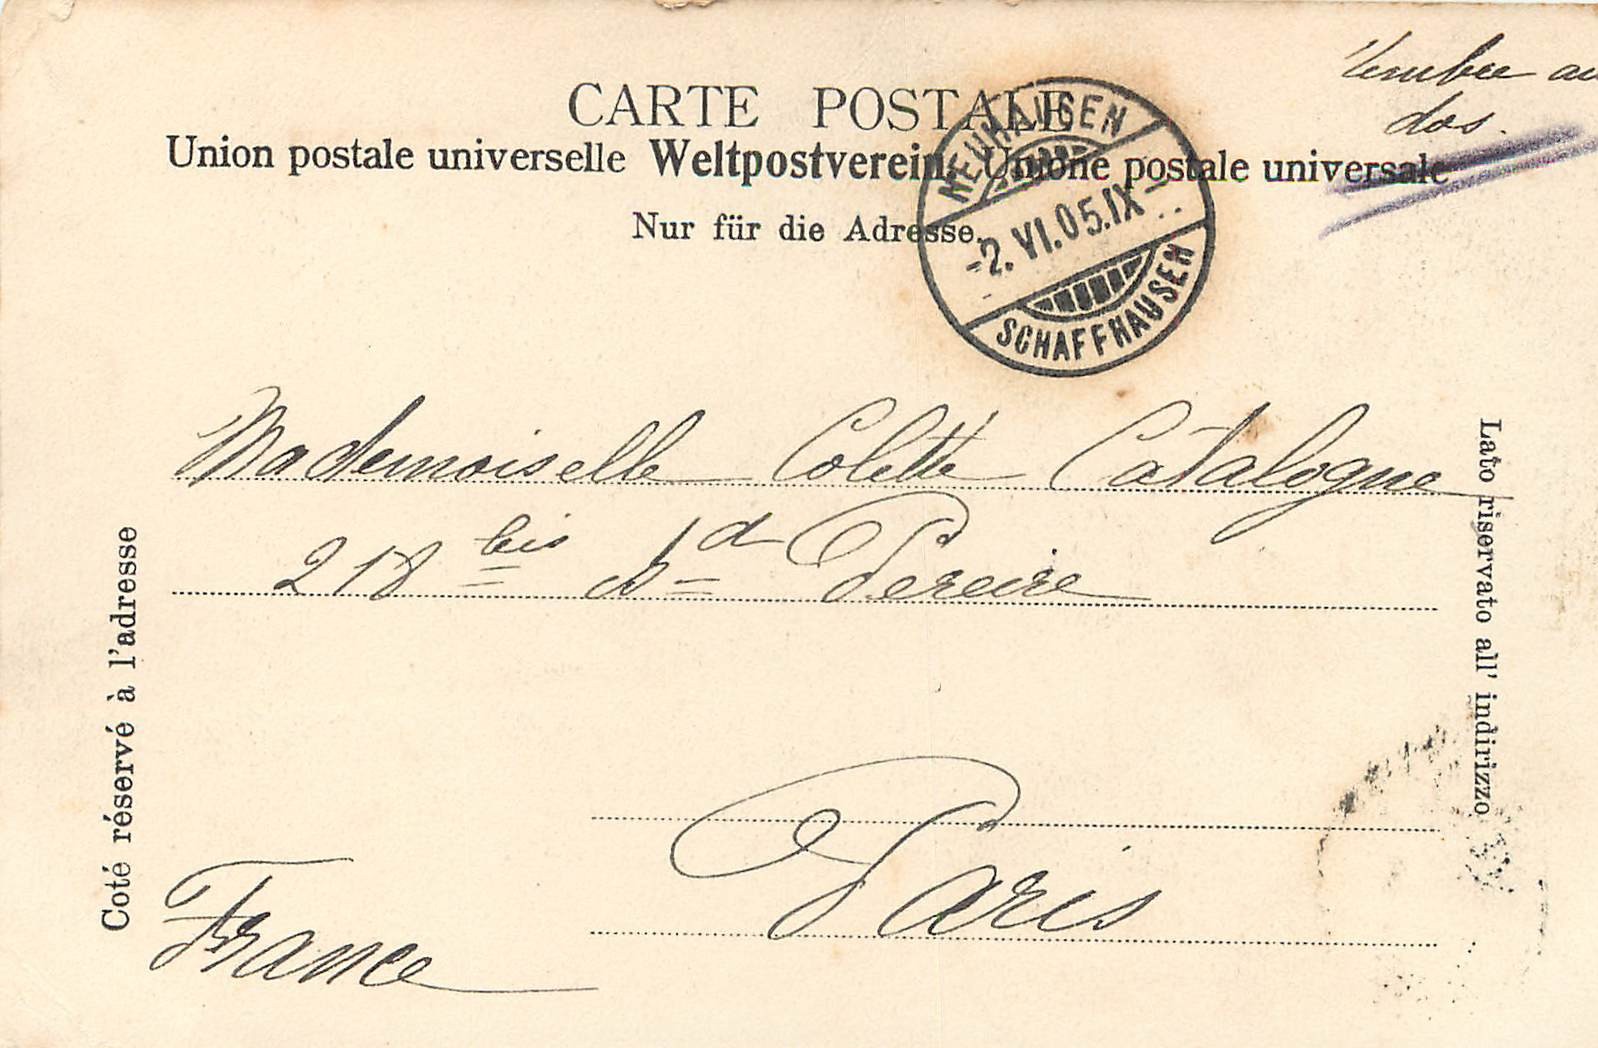 Timbre au
dos.
CARTE POSTALE
Union postale universelle Weltpostverein Unione postale universale
Nur für die Adresse.
NEUHAUSEN
-2.VI.05.IX-
SCHAFFHAUSEN
Mademoiselle Colette Catalogne
218 bis Bd Pereire
Paris
France
Coté réservé à l'adresse
Lato riservato all' indirizzo